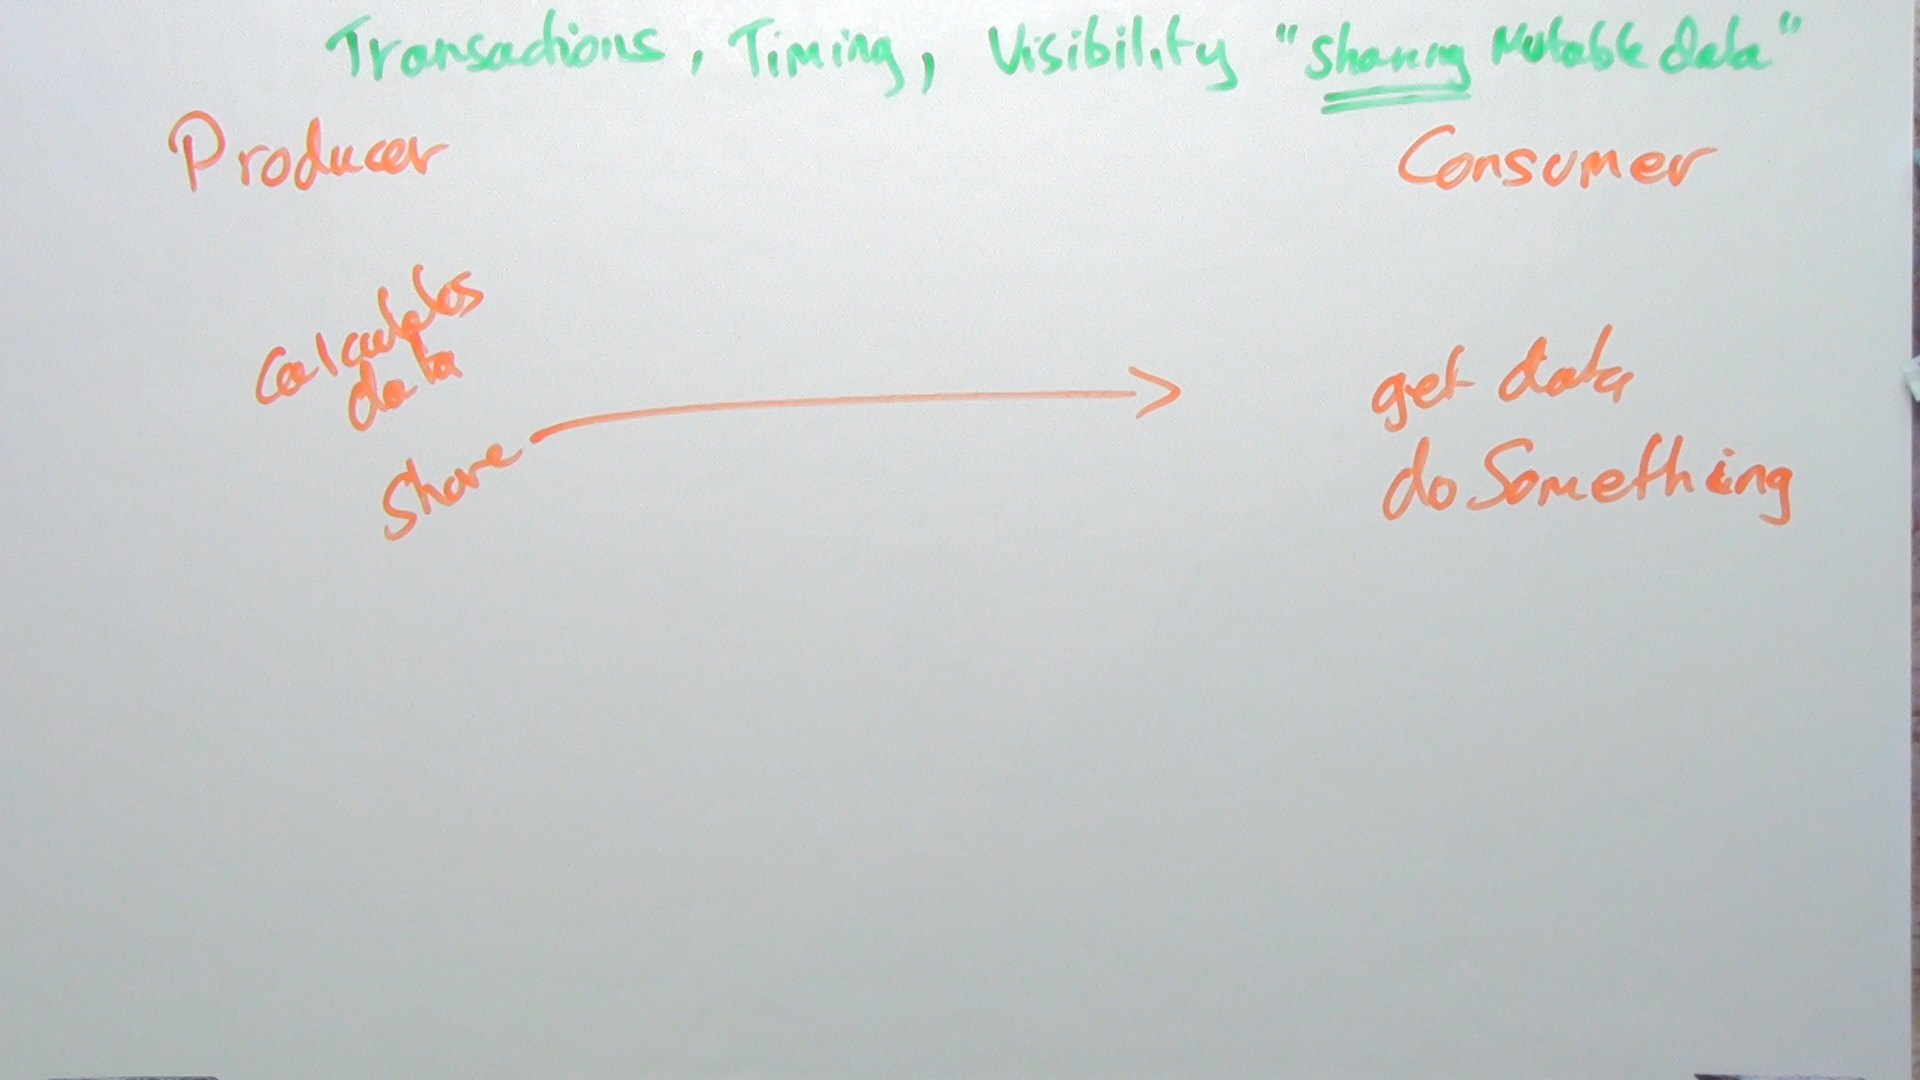 Transactions, Timing, Visibility "Sharing Mutable data"
Producer
Consumer
Calculates
data
Share
get data
do Something